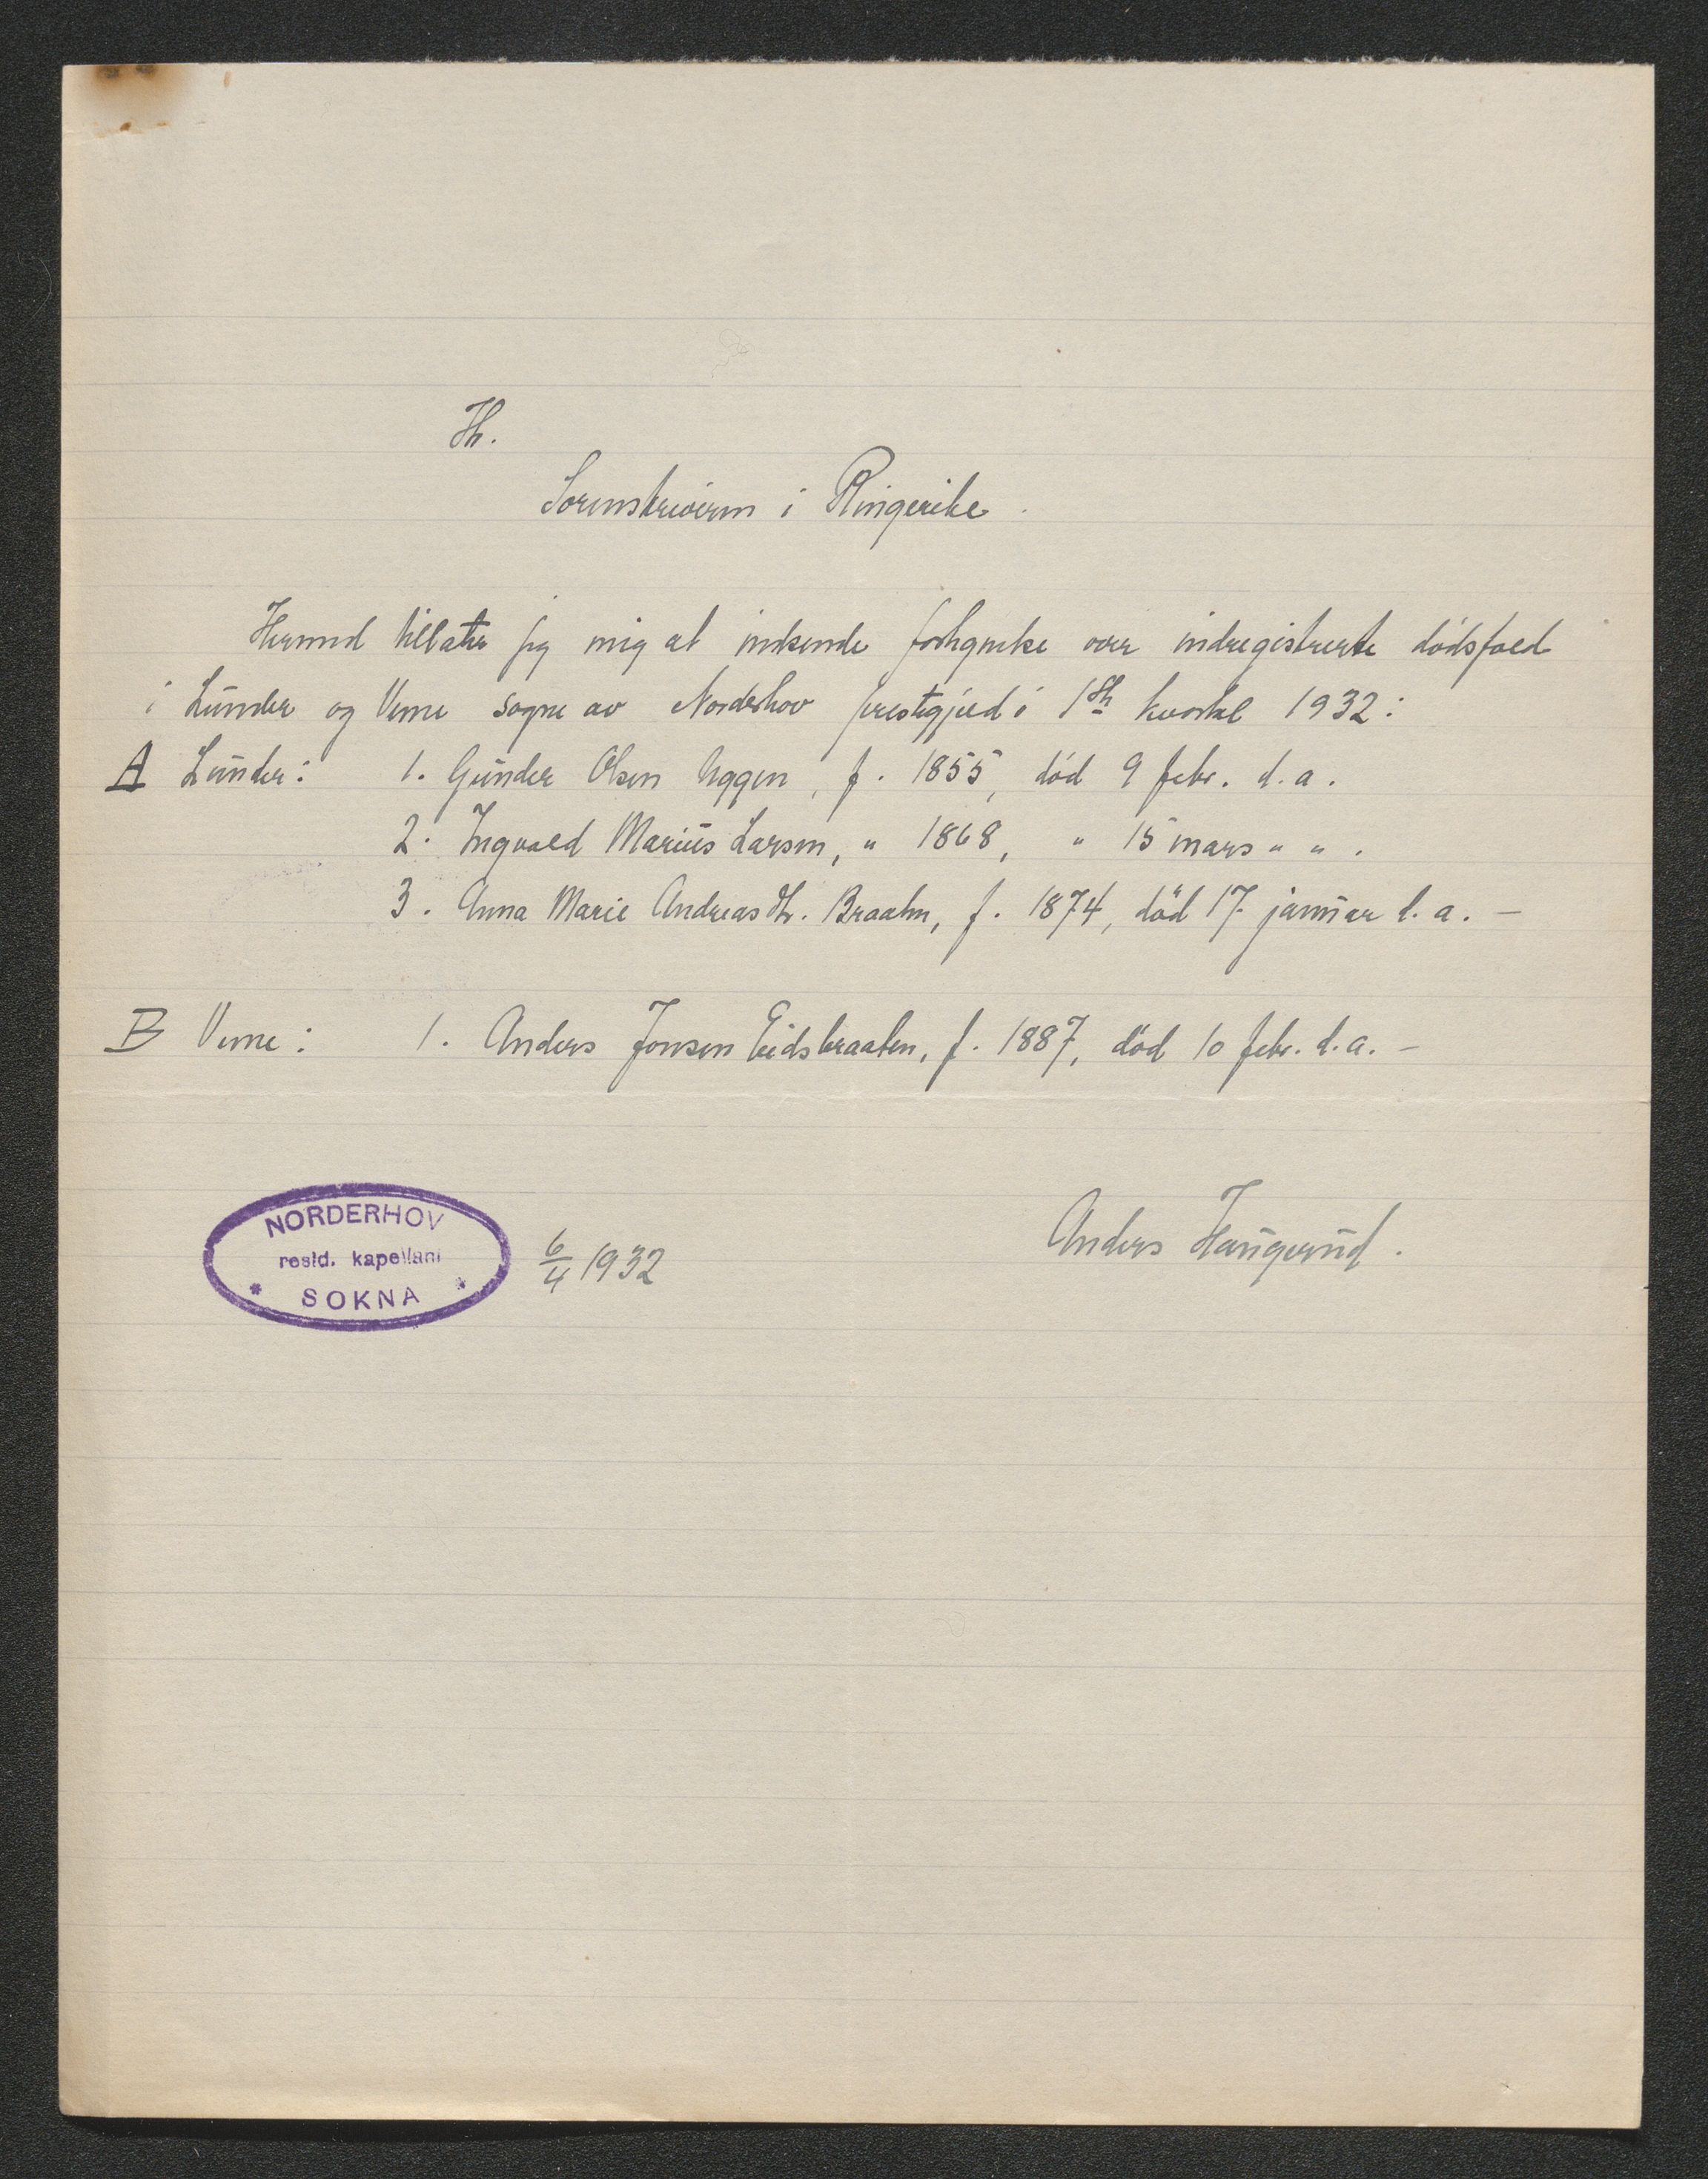 Hr.
Sorenskriveren i Ringerike.
Hermed tillater jeg mig at indsende fortegnelse over indregistrerte dödsfald
i Lunder og Veme sogne av Norderhov prestegjeld i 1ste kvartal 1932:
A Lunder: 1. Gunder Olsen Uggen, f. 1855, död 9 febr. d.a.
2. Ingvald Marius Larsen, " 1868, " 15 mars " ".
3. Anna Marie Andreasdtr. Braaten, f. 1874, död 17 januar d.a. –
B Veme: 1. Anders Jonsen Eidsbraaten, f. 1887, död 10 febr. d.a. –
NORDERHOV
resid. kapellani
* SOKNA *
6/4 1932
Anders Haugerud.